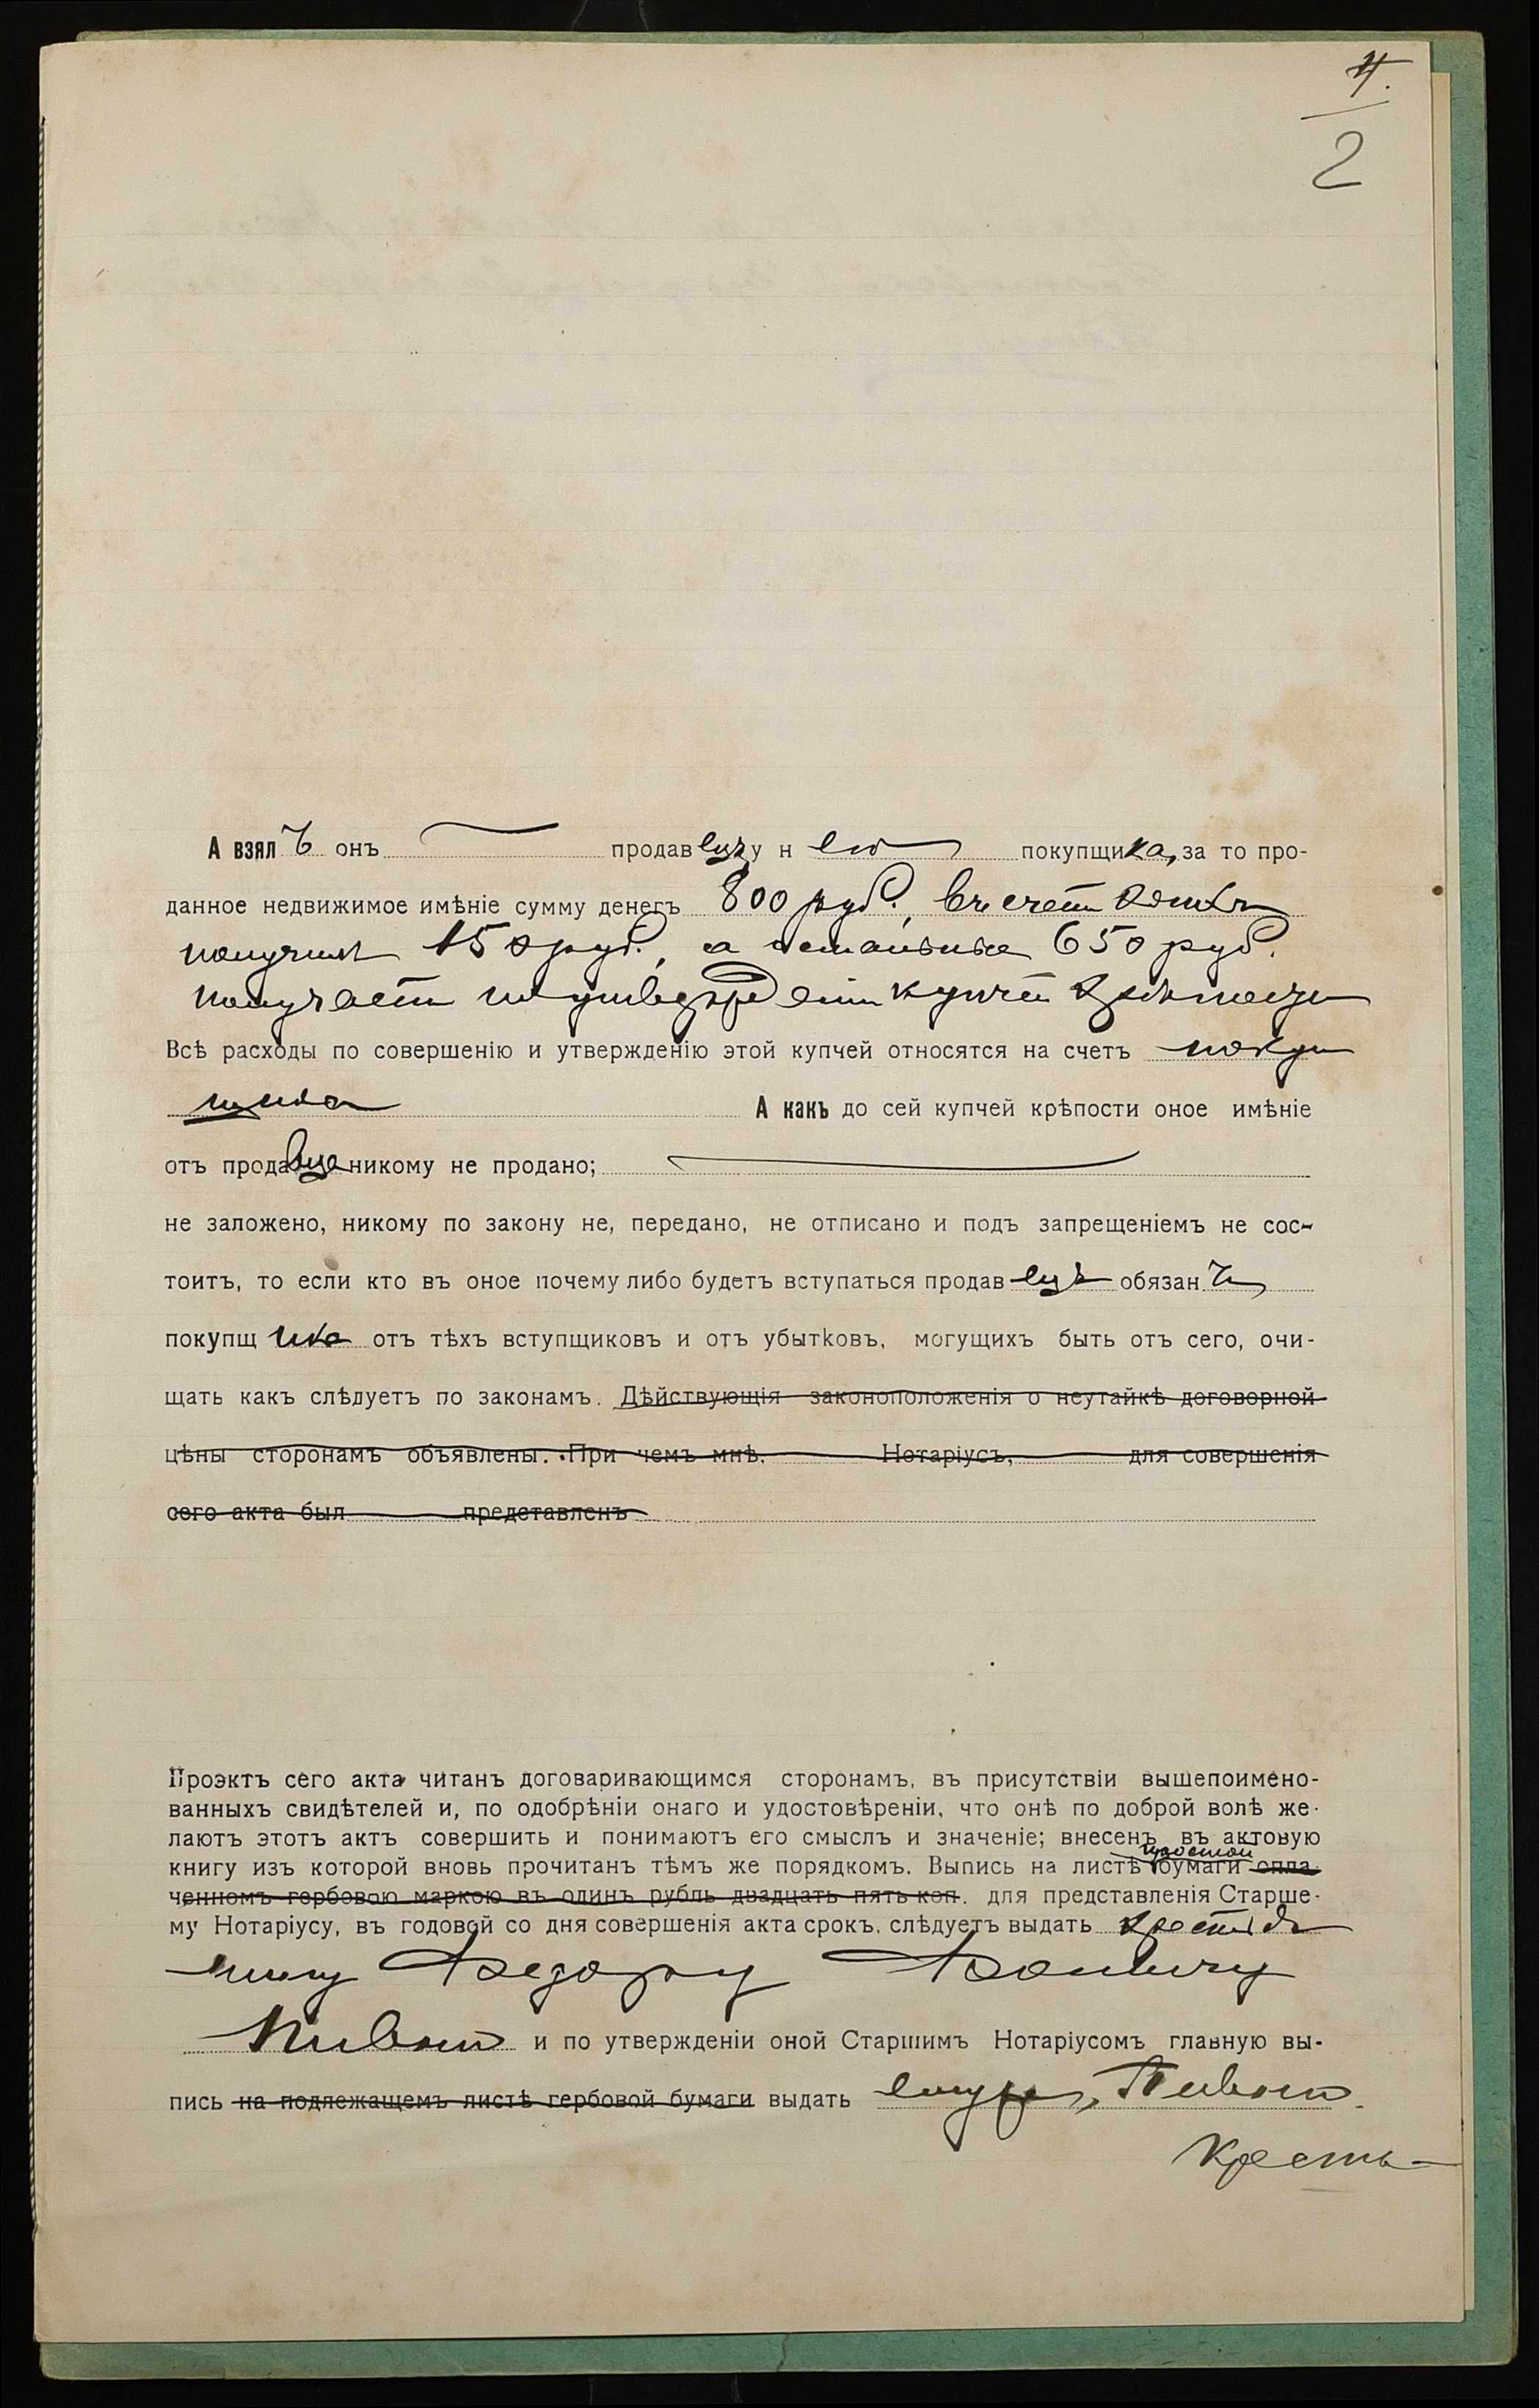 4.
2
А взялъ онъ продавецъ у него покупщика, за то про-
данное недвижимое имѣніе сумму денегъ 800 руб., въ счетъ коихъ
получилъ 150 руб., а остальные 650 руб.
получаетъ по утвержденіи купчей крѣпости
Всѣ расходы по совершенію и утвержденію этой купчей относятся на счетъ покуп
щика А какъ до сей купчей крѣпости оное имѣніе
отъ продавца никому не продано;
не заложено, никому по закону не, передано, не отписано и подъ запрещеніемъ не сос-
тоитъ, то если кто въ оное почему либо будетъ вступаться продавецъ обязанъ
покупщика отъ тѣхъ вступщиковъ и отъ убытковъ, могущихъ быть отъ сего, очи-
щать какъ слѣдуетъ по законамъ. Дѣйствующія законоположенія о неутайкѣ договорной
цѣны сторонамъ объявлены. При чемъ мнѣ, Нотаріусъ, для совершенія
сего акта был представленъ
Проэктъ сего акта читанъ договаривающимся сторонамъ, въ присутствіи вышепоимено-
ванныхъ свидѣтелей и, по одобрѣніи онаго и удостовѣреніи, что онѣ по доброй волѣ же-
лаютъ этотъ актъ совершить и понимаютъ его смыслъ и значеніе; внесенъ въ актовую
книгу изъ которой вновь прочитанъ тѣмъ же порядкомъ. Выпись на листѣ простой бумаги опла-
ченномъ гербовою маркою въ одинъ рубль двадцать пять коп. для представленія Старше-
му Нотаріусу, въ годовой со дня совершенія акта срокъ, слѣдуетъ выдать крестья
нину Федору Фомичу
и по утвержденіи оной Старшимъ Нотаріусомъ главную вы-
пись на подлежащемъ листѣ гербовой бумаги выдать ему же,
Кресть-